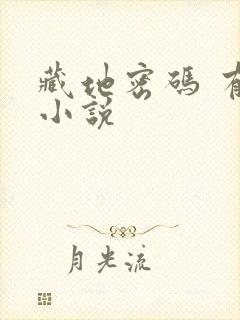 藏地密碼 有
小說
月光流